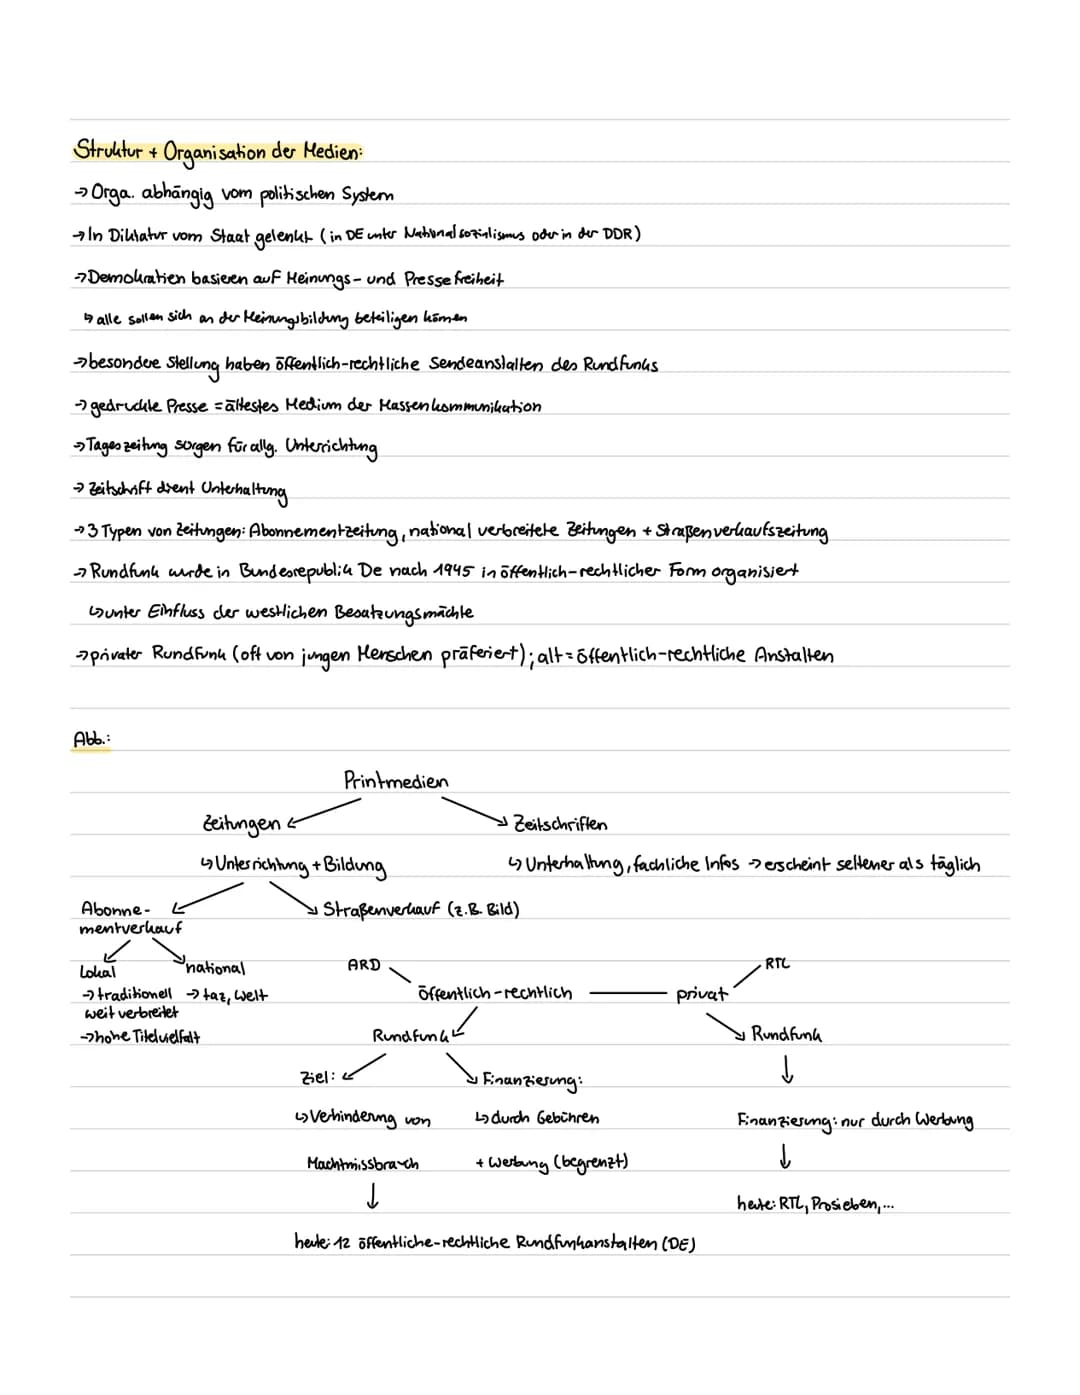 Struktur + Organisation der Medien:
→ Orga. abhängig vom politischen System
→ In Diktatur vom Staat gelenkt (in DE unter Nationalsozialismus oder in der DDR)
→ Demokratien basieren auf Meinungs- und Pressefreiheit
↳ alle sollen sich an der Meinungsbildung beteiligen können
→ besondere Stellung haben öffentlich-rechtliche Sendeanstalten des Rundfunks
→ gedruckte Presse = ältestes Medium der Massenkommunikation
→ Tageszeitung sorgen für allg. Unterrichtung
→ Zeitschrift dient Unterhaltung
→ 3 Typen von Zeitungen: Abonnementzeitung, national verbreitete Zeitungen + Straßenverkaufszeitung
→ Rundfunk wurde in Bundesrepublik De nach 1945 in öffentlich-rechtlicher Form organisiert
↳ unter Einfluss der westlichen Besatzungsmächte
→ privater Rundfunk (oft von jungen Menschen präferiert); alt = öffentlich-rechtliche Anstalten
Abb.:
Printmedien
Zeitungen
Zeitschriften
↳ Unterrichtung + Bildung
↳ Unterhaltung, fachliche Infos → erscheint seltener als täglich
Abonne-
mentverkauf
Straßenverkauf (z.B. Bild)
Lokal
national
→ traditionell
weit verbreitet
→ taz, Welt
→ hohe Titelvielfalt
ARD
öffentlich-rechtlich
privat
RTL
Rundfunk
Rundfunk
Ziel:
Finanzierung:
↳ Verhinderung von
Machtmissbrauch
↳ durch Gebühren
+ Werbung (begrenzt)
Finanzierung: nur durch Werbung
heute: RTL, Prosieben,...
heute: 12 öffentliche-rechtliche Rundfunkanstalten (DE)